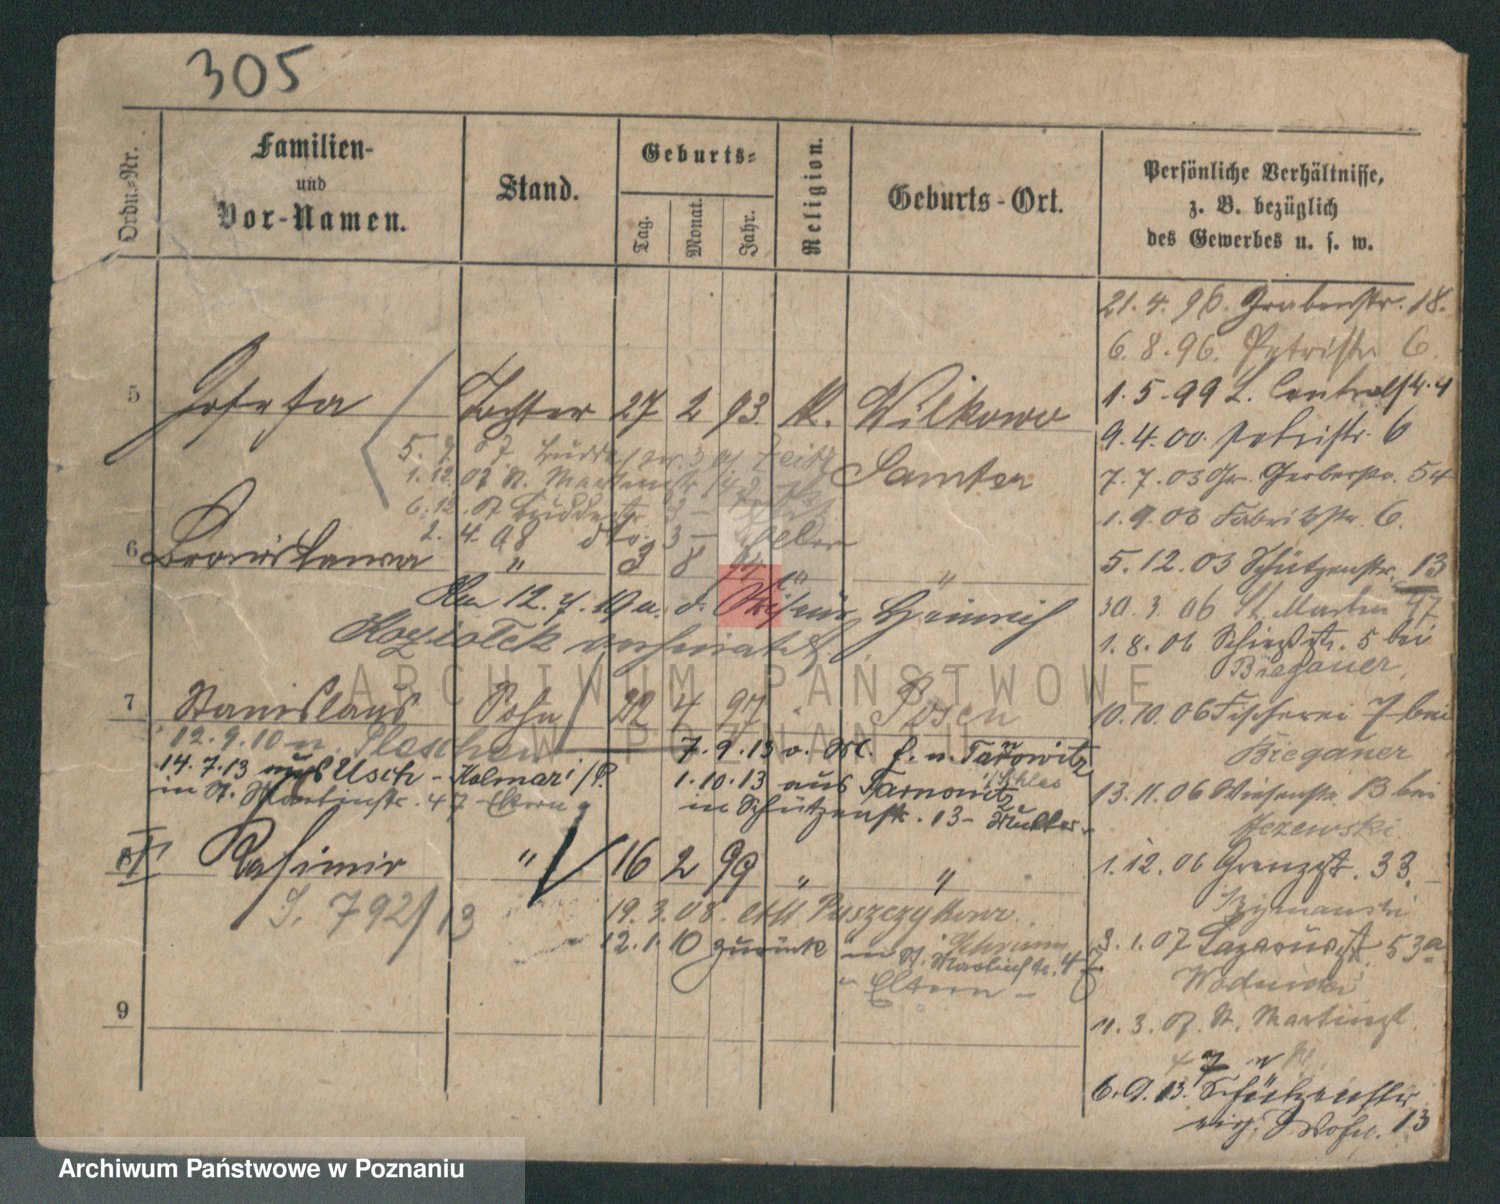 305
Ordn.-Nr.
Familien-
und
Vor-Namen.
Stand.
Geburts-
Tag.
Monat.
Jahr.
Religion.
Geburts-Ort.
Persönliche Verhältnisse,
z. B. bezüglich
des Gewerbes u. s. w.
21. 4. 96. Grabenstr. 18.
6. 8. 96. Petristr. 6.
5 Josefa Tochter 27 2 93. k. Wilkowo
1. 5. 99 Centralstr. 4
9. 4. 00. Petristr. 6
Samter
7. 7. 03 Gr. Gerberstr. 54
1. 12. 07 St. Martinstr.
1. 9. 03 Fabrikstr. 6.
2. 4. 08 dto. 3
6 Bronislawa " 3 8 " "
5. 12. 03 Schützenstr. 13
Am 12. 7. 10 a. d. Heinrich
30. 3. 06 St. Martin 47
Koziolek verheiratet.
1. 8. 06 Schießstr. 5 bei
Bieganer.
ARCHIWUM PAŃSTWOWE
W POZNANIU
7 Stanislaus Sohn 22 4 97 Posen
10. 10. 06 Fischerei 7 bei
Bieganer
12. 9. 10 n. Pleschen
7. 9. 13 v. n. Tarnowitz
14. 7. 13 aus Usch - Kolmar i/P.
1. 10. 13 aus Tarnowitz
in St. Martinstr. 47 Eltern
in Schützenstr. 13 - Mutter.
13. 11. 06 Wiesenstr. 13 bei
Jezewski.
Kasimir " 16 2 99 " "
1. 12. 06 Grenzstr. 33.
Szymanski
S. 792/13
19. 3. 08. Puszczykowo.
12. 1. 10 zurück in St. Martinstr. 47
" Eltern -
3. 1. 07 Lazarusstr. 53a
9
11. 3. 07. St. Martinstr.
47
6. 9. 13. Schützenstr
13
Archiwum Państwowe w Poznaniu